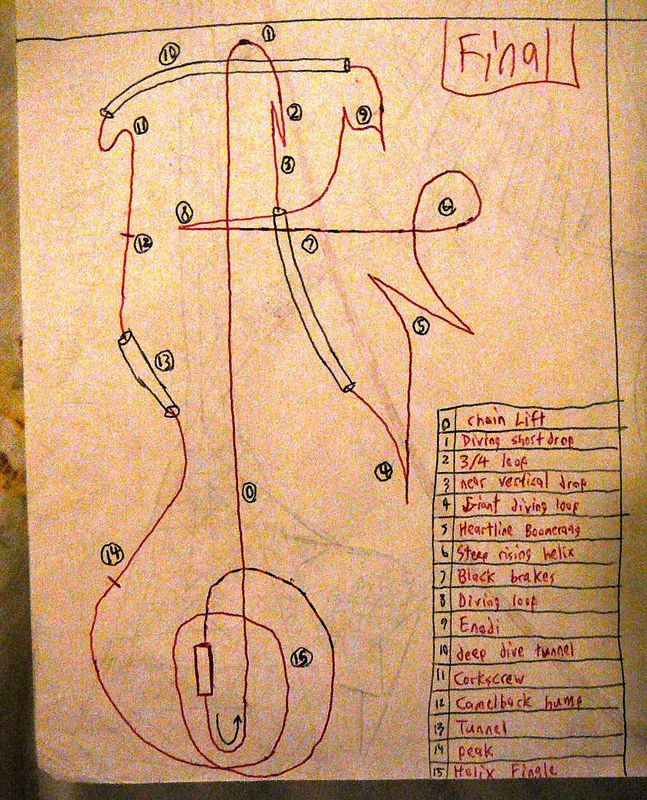 Final
1
10
2
9
11
3
8
6
12
7
5
13
4
0
14
15
0 chain Lift
1 Diving short drop
2 3/4 loop
3 near vertical drop
4 Giant diving loop
5 Heartline Boomerang
6 Steep rising helix
7 Block brakes
8 Diving loop
9 Enadi
10 deep dive tunnel
11 Corkscrew
12 Camelback hump
13 Tunnel
14 peak
15 Helix Finale